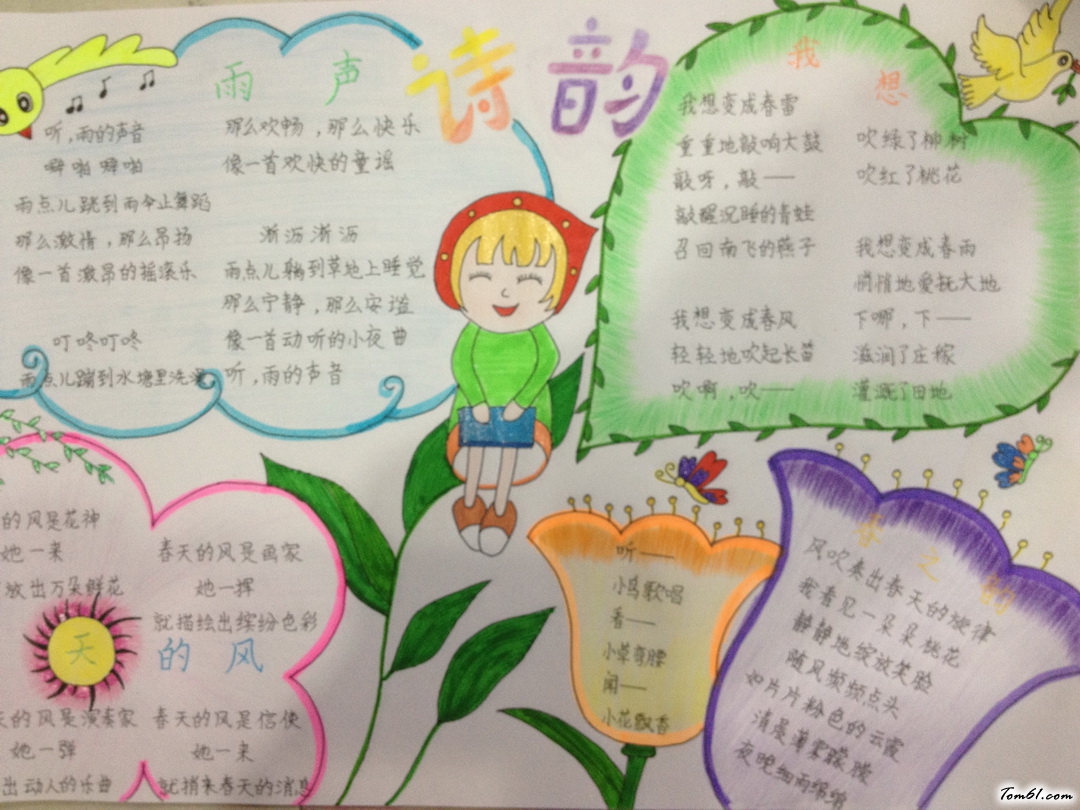 诗韵
雨声
听，雨的声音
噼啪噼啪
雨点儿跳到雨伞上舞蹈
那么激情，那么昂扬
像一首激昂的摇滚乐
叮咚叮咚
雨点儿蹦到水塘里洗澡
那么欢畅，那么快乐
像一首欢快的童谣
淅沥淅沥
雨点儿躺到草地上睡觉
那么宁静，那么安谧
像一首动听的小夜曲
听，雨的声音
我想
我想变成春雷
重重地敲响大鼓
敲呀，敲——
敲醒沉睡的青蛙
召回南飞的燕子
我想变成春风
轻轻地吹起长笛
吹啊，吹——
吹绿了柳树
吹红了桃花
我想变成春雨
悄悄地爱抚大地
下哪，下——
滋润了庄稼
灌溉了田地
天的风
的风是花神
她一来
放出万朵鲜花
春天的风是画家
她一挥
就描绘出缤纷色彩
天的风是演奏家
她一弹
出动人的乐曲
春天的风是信使
她一来
就捎来春天的消息
听——
小鸟歌唱
看——
小草弯腰
闻——
小花飘香
春之韵
风吹奏出春天的旋律
我看见一朵朵桃花
静静地绽放笑脸
随风频频点头
如片片粉色的云霞
清晨薄雾朦胧
夜晚细雨绵绵
Tom61.com